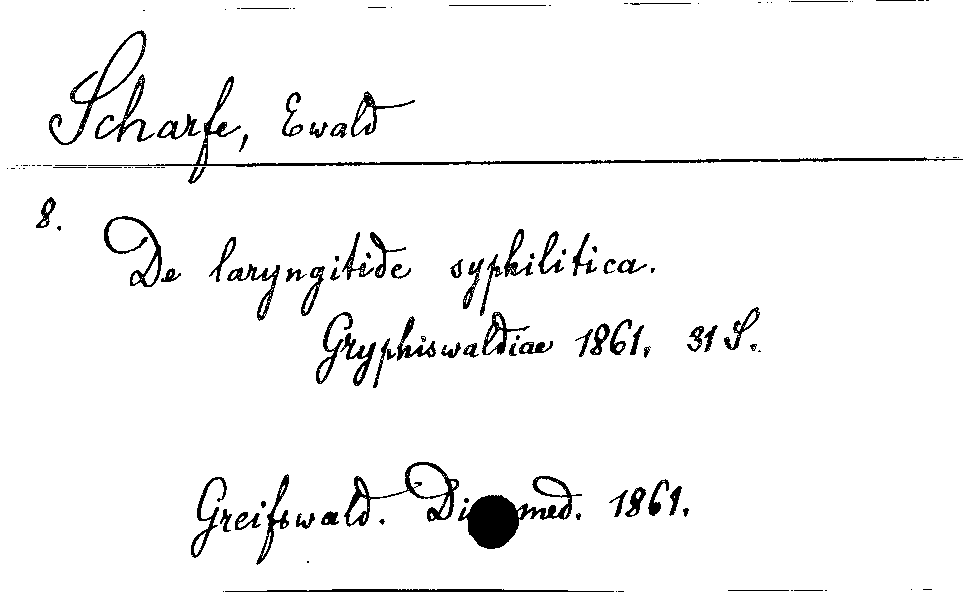 Scharfe, Ewald
8.
De laryngitide syphilitica.
Gryphiswaldiae 1861. 31 S.
Greifswald. Di med. 1861.